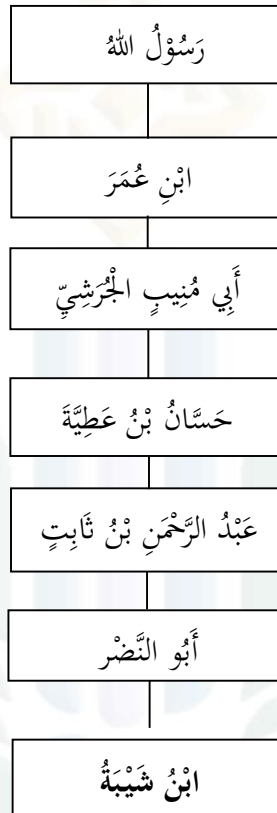 رَسُوْلُ اللهُ
ابْنِ عُمَرَ
أَبِي مُنِيبٍ الْجُرَشِيِّ
حَسَّانُ بْنُ عَطِيَّةَ
عَبْدُ الرَّحْمَنِ بْنُ ثَابِتٍ
أَبُو النَّضْر
ابْنُ شَيْبَةُ